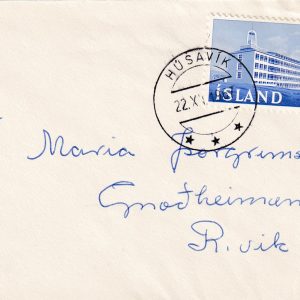 HÚSAVÍK
22.X
ÍSLAND
Maria Þorgrims
Gnoðheimen
R.vik